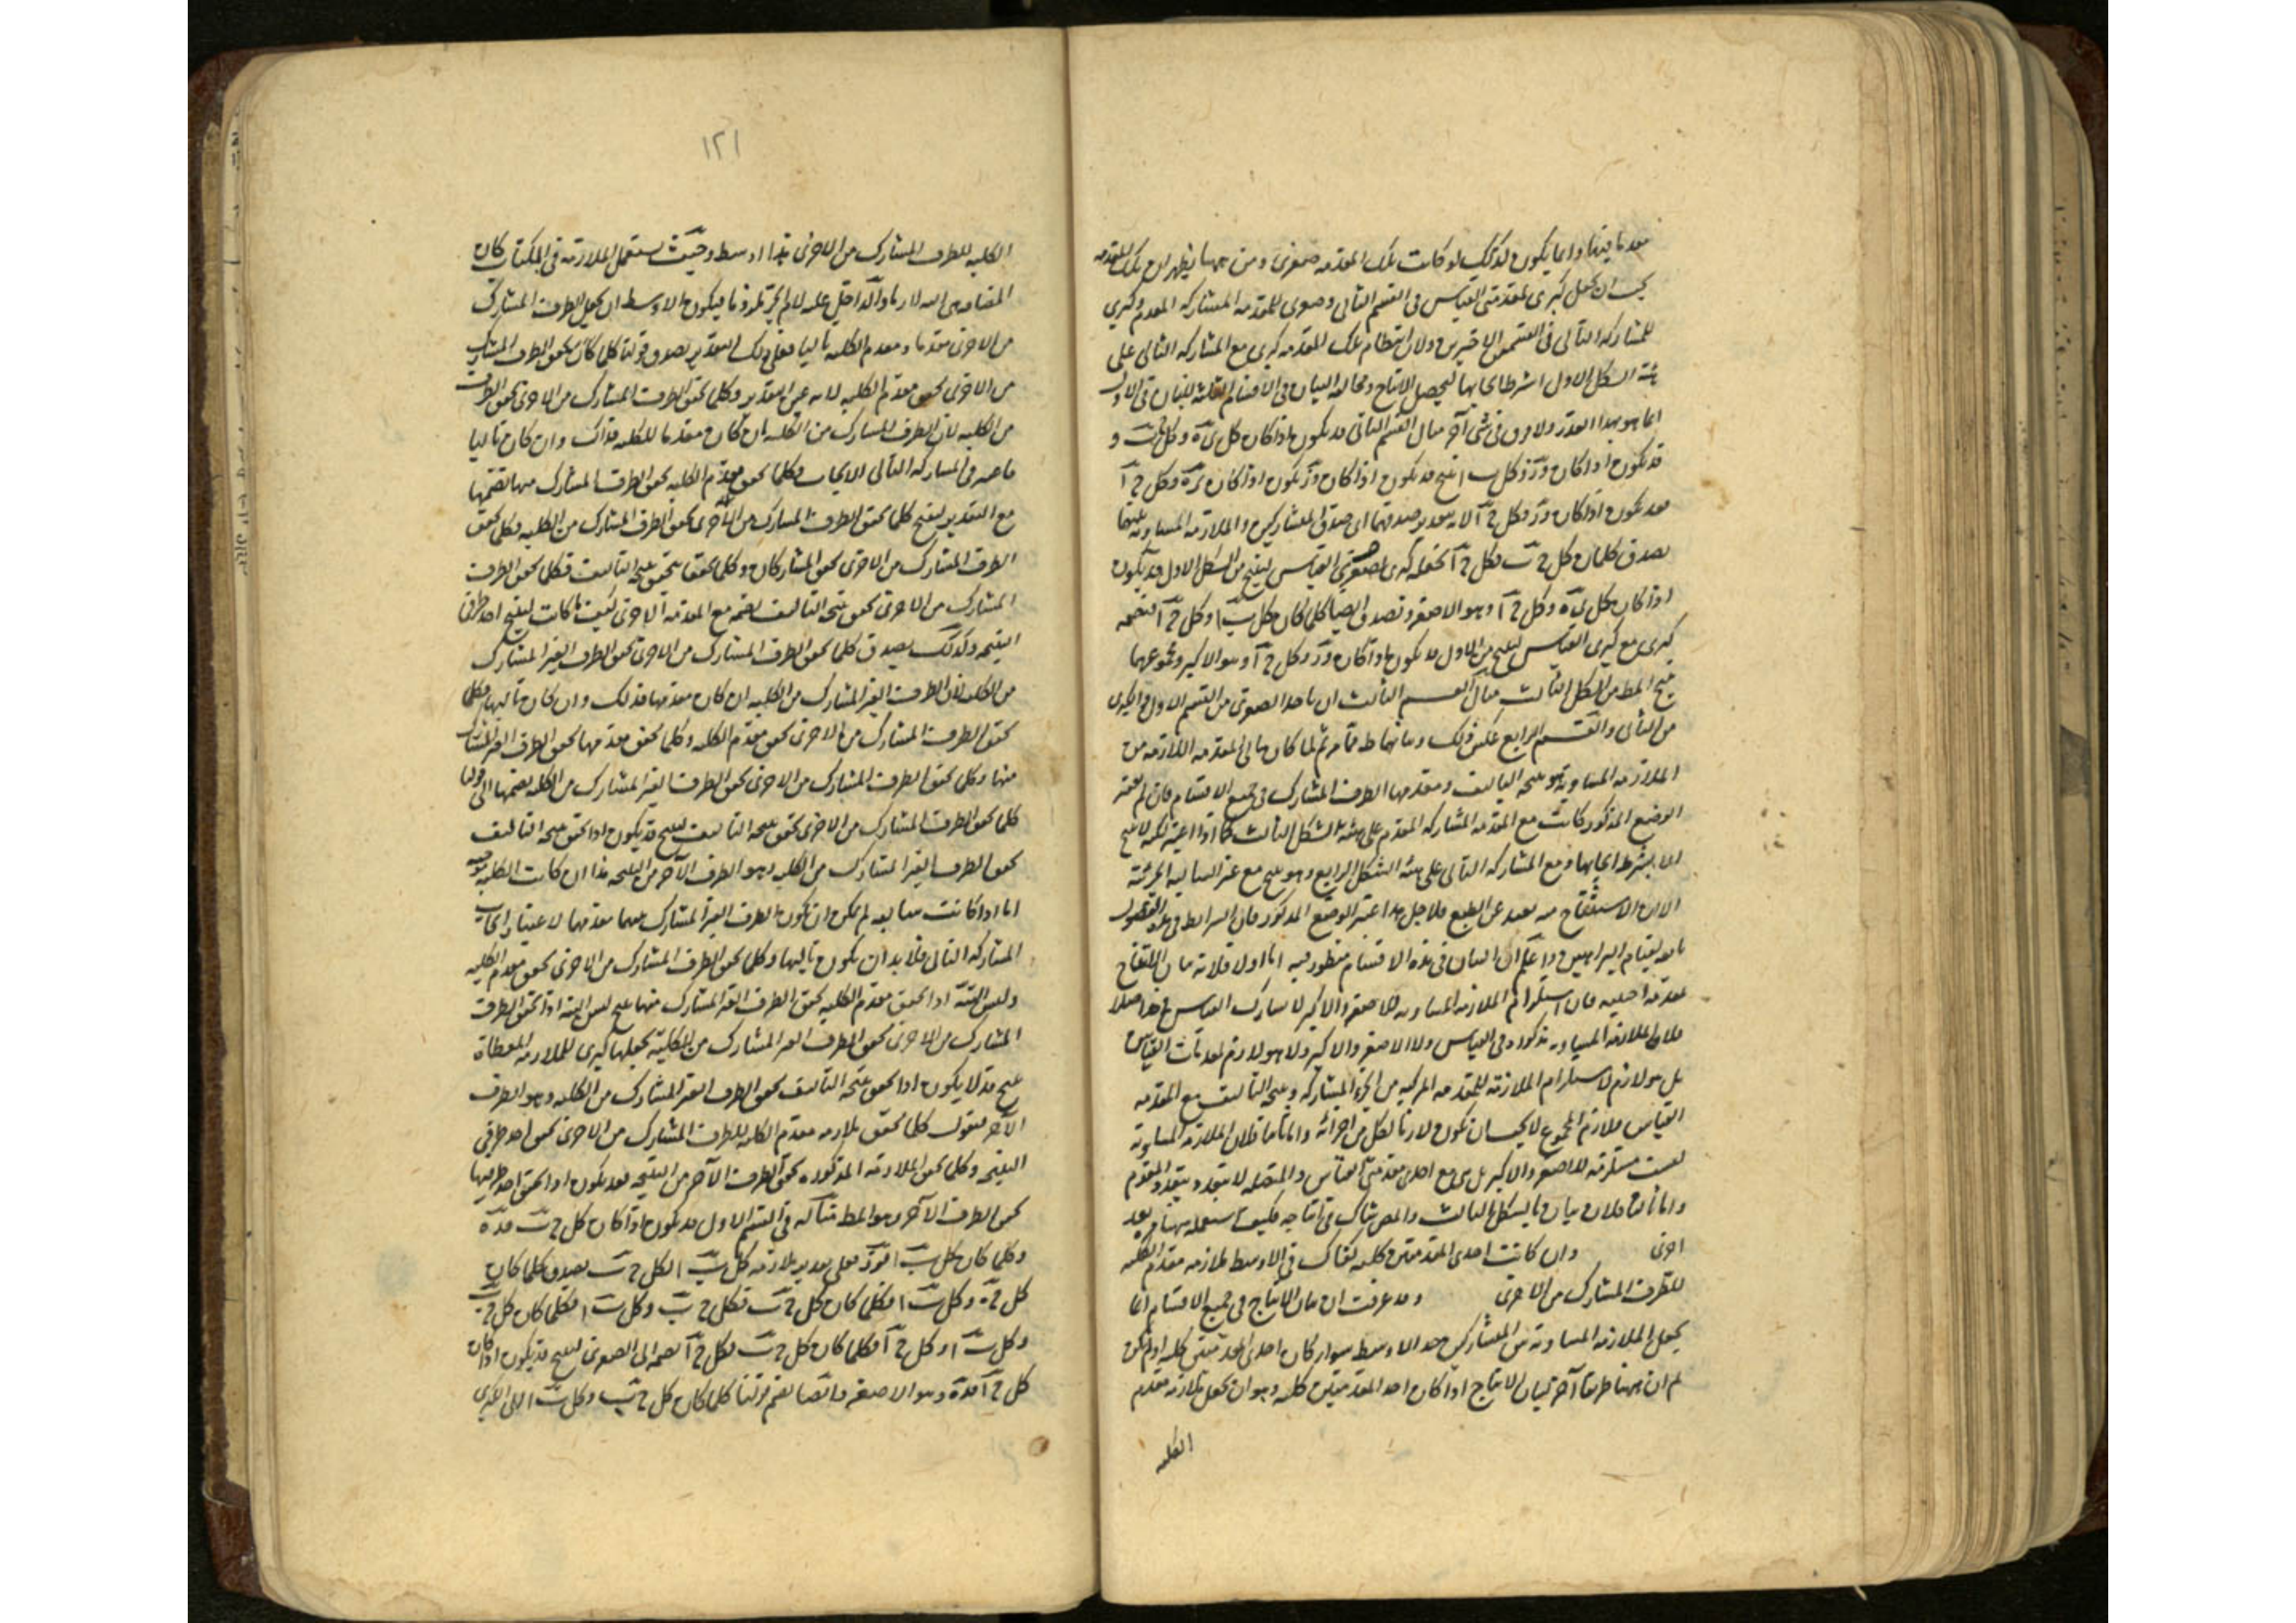 وانما يكون كذلك لو كانت تلك المقدمة صغرى ومن ههنا يظهر ان تلك المقدمة
يجب ان تجعل كبرى لمقدمتي القياس في القسم الثاني وصغرى للمقدمة المشاركة المقدم وكبرى
للمشاركة التالي في القسمين الاخيرين ولان انتظام تلك المقدمة كبرى مع المشاركة التالي على
هيئة الشكل الاول اشترط ايجابها ليحصل الانتاج ومخالفة البيان في الاقسام الثلثة للبيان في الاول
انما هو بهذا القدر ولا فرق في شي آخر مثال القسم الثاني قد يكون اذا كان كل
قد يكون اذا كان وكل ب ا ينتج قد يكون اذا كان
فقد يكون اذا كان فكل ج آ لانه بتقدير صدقهما اي صدق المتشاركين والملازمة المساوية
يصدق كلما كان كل ج ب فكل ج آ نجعله كبرى لصغرى القياس لينتج من الشكل الاول قد يكون
اذا كان كل وكل ج آ وهو الاصغر ويصدق ايضا كلما كان كل ب ا وكل ج آ
كبرى مع كبرى القياس لينتج من الاول قد يكون اذا كان وكل ج آ وهو الاكبر ومجموعهما
ينتج المط من الشكل الثالث مثال القسم الثالث ان ناخذ الصغرى من القسم الاول والكبرى
من الثاني والقسم الرابع عكس ذلك وبيانهما ما مر ثم لما كان تالي المقدمة اللازمة من
الملازمة المساوية هو نتيجة التاليف ومقدمها الطرف المشارك في جميع الاقسام فان لم يعتبر
الوضع المذكور كانت مع المقدمة المشاركة المقدم على هيئة الشكل الثالث
الا بشرط ايجابها ومع المشاركة التالي على هيئة الشكل الرابع وهو ينتج مع غير السالبة الجزئية
الا ان الاستنتاج منه بعيد عن الطبع فلاجل هذا اعتبر الوضع المذكور فان الشرايط في هذه الفصول
تابعة لقيام البراهين واعلم ان البيان في هذه الاقسام منظور فيه اما اولا فلانه بيان الانتاج
بمقدمة اجنبية فان استلزام الملازمة المساوية للاصغر والاكبر لا يشارك القياس في حد اصلا
فلا الملازمة المساوية مذكورة في القياس ولا الاصغر والاكبر ولا هو لازم لمقدمات القياس
بل هو لازم لاستلزام الملازمة للمقدمة المركبة من الجزء المشاركة ونتيجة التاليف مع المقدمة
القياس فلازم المجموع لا يجب ان يكون لازما لكل من اجزائه واما ثانيا فلان الملازمة المساوية
ليست مستلزمة للاصغر والاكبر بل هي مع احدى مقدمتي القياس والمتصلة لا تتعدد بتعدد المقدم
واما ثالثا فلان بيان بالشكل الثالث والمص شاك في انتاجه فكيف استعمله ههنا
اخرى وان كانت احدى المقدمتين كلية كفاك في الاوسط ملازمة مقدم الكلية
للطرف المشارك من الاخرى وقد عرفت ان بيان الانتاج في جميع الاقسام انما
يجعل الملازمة المساوية من المتشاركين حد الاوسط سواء كان احدى المقدمتين كلية او لم تكن
ثم ان ههنا طريقا آخر لبيان الانتاج اذا كان احد المقدمتين كلية وهو ان تجعل ملازمة مقدم
الكلية
١٢١
الكلية للطرف المشارك من الاخرى هذا اوسط وحيث يستعمل الملازمة في كان
من الاخرى مقدما ومقدم الكلية تاليا فعلى ذلك التقدير يصدق قولنا كلما كان يتحقق الطرف المشارك
من الاخرى تحقق مقدم الكلية لانه عين التقدير وكلما تحقق الطرف المشارك من الاخرى تحقق الطرف
من الكلية لان الطرف المشارك من الكلية ان كان مقدما للكلية فذاك وان كان تاليا
في المشاركة التالي الايجاب فكلما تحقق مقدم الكلية تحقق الطرف المشارك منها نضمها
مع التقدير لينتج كلما تحقق الطرف المشارك من الاخرى تحقق الطرف المشارك من الكلية فكلما تحقق
الطرف المشارك من الاخرى تحقق المتشاركان وكلما تحققا تحقق نتيجة التاليف فكلما تحقق الطرف
المشارك من الاخرى تحقق نتيجة التاليف نضمه مع المقدمة الاخرى كيف ما كانت لينتج احد طرفي
النتيجة وكذلك يصدق كلما تحقق الطرف المشارك من الاخرى تحقق الطرف الغير المشارك
من الكلية لان الطرف الغير المشارك من الكلية ان كان مقدمها فذلك وان كان تاليها فكلما
تحقق الطرف المشارك من الاخرى تحقق مقدم الكلية وكلما تحقق مقدمها تحقق الطرف الغير المشارك
منها وكلما تحقق الطرف المشارك من الاخرى تحقق الطرف الغير المشارك من الكلية نضمها الى قولنا
كلما تحقق الطرف المشارك من الاخرى تحقق نتيجة التاليف لينتج قد يكون اذا تحقق نتيجة التاليف
تحقق الطرف الغير المشارك من الكلية وهو الطرف الآخر من النتيجة هذا ان كانت الكلية موجبة
اما اذا كانت سالبة لم يمكن ان يكون الطرف الغير المشارك منهما مقدمها لاعتبار ايجاب
المشاركة التالي فلا بد ان يكون تاليها وكلما تحقق الطرف المشارك من الاخرى تحقق مقدم الكلية
وليس البتة اذا تحقق مقدم الكلية تحقق الطرف الغير المشارك منها ينتج ليس البتة اذا تحقق الطرف
المشارك من الاخرى تحقق الطرف الغير المشارك من الكلية نجعلها كبرى للملازمة المعطاة
ينتج قد لا يكون اذا تحقق نتيجة التاليف تحقق الطرف الغير المشارك من الكلية وهو الطرف
الآخر فنقول كلما تحقق ملازمة مقدم الكلية للطرف المشارك من الاخرى تحقق احد طرفي
النتيجة وكلما تحقق الملازمة المذكورة تحقق الطرف الآخر من النتيجة فقد يكون اذا تحقق احد طرفيها
تحقق الطرف الآخر وهو المط مثاله في القسم الاول قد يكون اذا كان كل ج ب
وكلما كان كل ب ا فعلى تقدير ملازمة كل ب ا لكل ج ب يصدق كلما كان
كل ج ب وكل ب ا فكلما كان كل ج ب فكل ج ب وكل ب ا فكلما كان كل ج ب
وكل ب ا وكل ج آ فكلما كان كل ج ب فكل ج آ نضمه الى الصغرى لينتج قد يكون اذا كان
كل ج آ وهو الاصغر وايضا نضم قولنا كلما كان كل ج ب وكل ب ا الى الكبرى